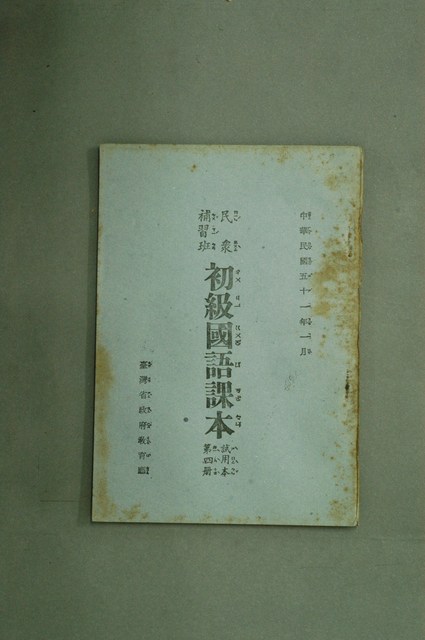 中華民國五十一年一月
民眾
補習班
初級國語課本
試用本
第四册
臺灣省政府教育廳